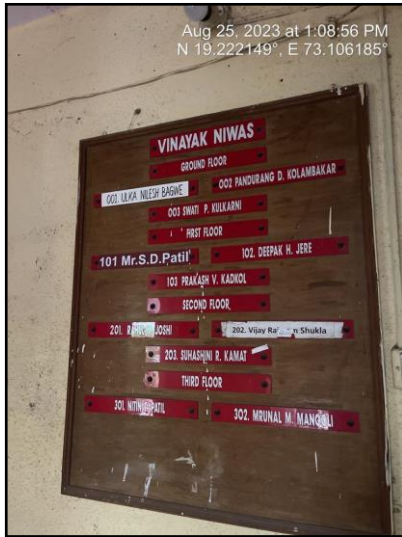 Aug 25, 2023 at 1:08:56 PM
N 19.222149°, E 73.106185°
VINAYAK NIWAS
GROUND FLOOR
001. ULKA NILESH BAGWE
002 PANDURANG D. KOLAMBAKAR
003 SWATI P. KULKARNI
FIRST FLOOR
101 Mr.S.D.Patil
102. DEEPAK H. JERE
103 PRAKASH V. KADKOL
SECOND FLOOR
201. JOSHI
202. Vijay Shukla
203. SUHASHINI R. KAMAT
THIRD FLOOR
301. NITIN PATIL
302. MRUNAL M.